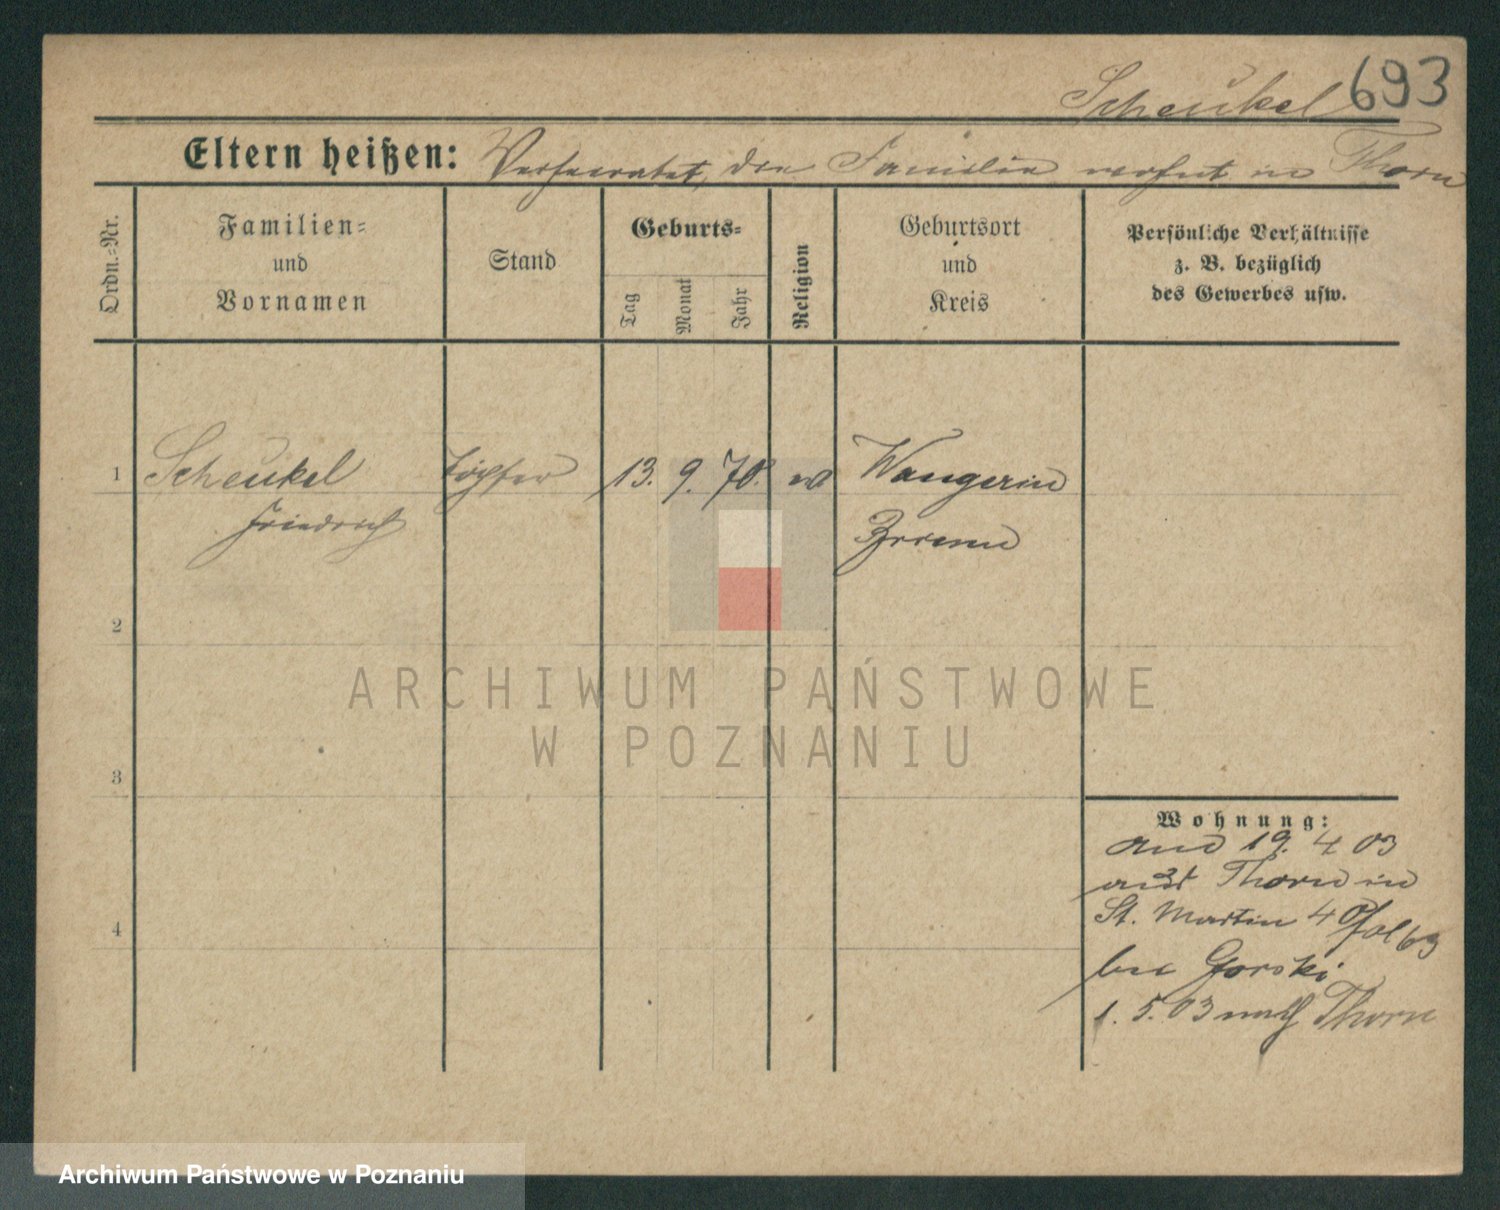 Scheukel 693
Eltern heißen: Verheiratet, die Familie wohnt in Thorn
Ordn.-Nr.
Familien-
und
Vornamen
Stand
Geburts-
Tag
Monat
Jahr
Religion
Geburtsort
und
Kreis
Persönliche Verhältnisse
z. B. bezüglich
des Gewerbes usw.
1 Scheukel Töpfer 13. 9. 70. ev Wangerin
Friedrich
2
3
4
Wohnung:
19. 4 03
aus Thorn in
St. Martin 4
bei Gorski
1. 5. 03 nach Thorn
ARCHIWUM PAŃSTWOWE
W POZNANIU
Archiwum Państwowe w Poznaniu